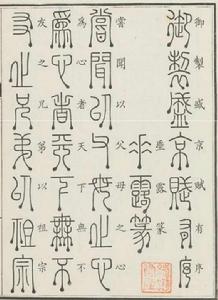 御製盛京賦有序
御製盛京賦有序
垂露篆
垂露篆
嘗聞以父母之心
嘗聞以父母之心
為心者天下無不
為心者天下無不
友之兄弟以祖宗
友之兄弟以祖宗